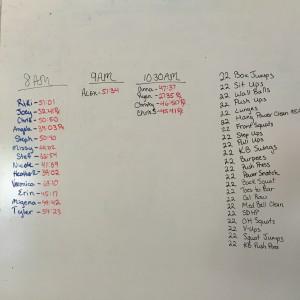 8AM
Riki - 51:01
Joey - 52:41
Chris - 50:50
Angela - 39:03
Steph - 50:40
Missy
Steff
Nicole
Heather
Veronica
Erin - 45:17
Migena
Tyler - 59:23
9AM
Alex - 51:34
10:30AM
Anna - 47:37
Ryan - 27:35
Christy - 46:50
Chris S - 45:41
22 Box Jumps
22 Sit Ups
22 Wall Balls
22 Push Ups
22 Lunges
22 Hang Power Clean
22 Front Squats
22 Step Ups
22 Pull Ups
22 KB Swings
22 Burpees
22 Push Press
22 Power Snatch
22 Back Squat
22 Toes to Bar
22 Cal Row
22 Med Ball Clean
22 SDHP
22 OH Squats
22 V-Ups
22 Squat Jumps
22 KB Push Press